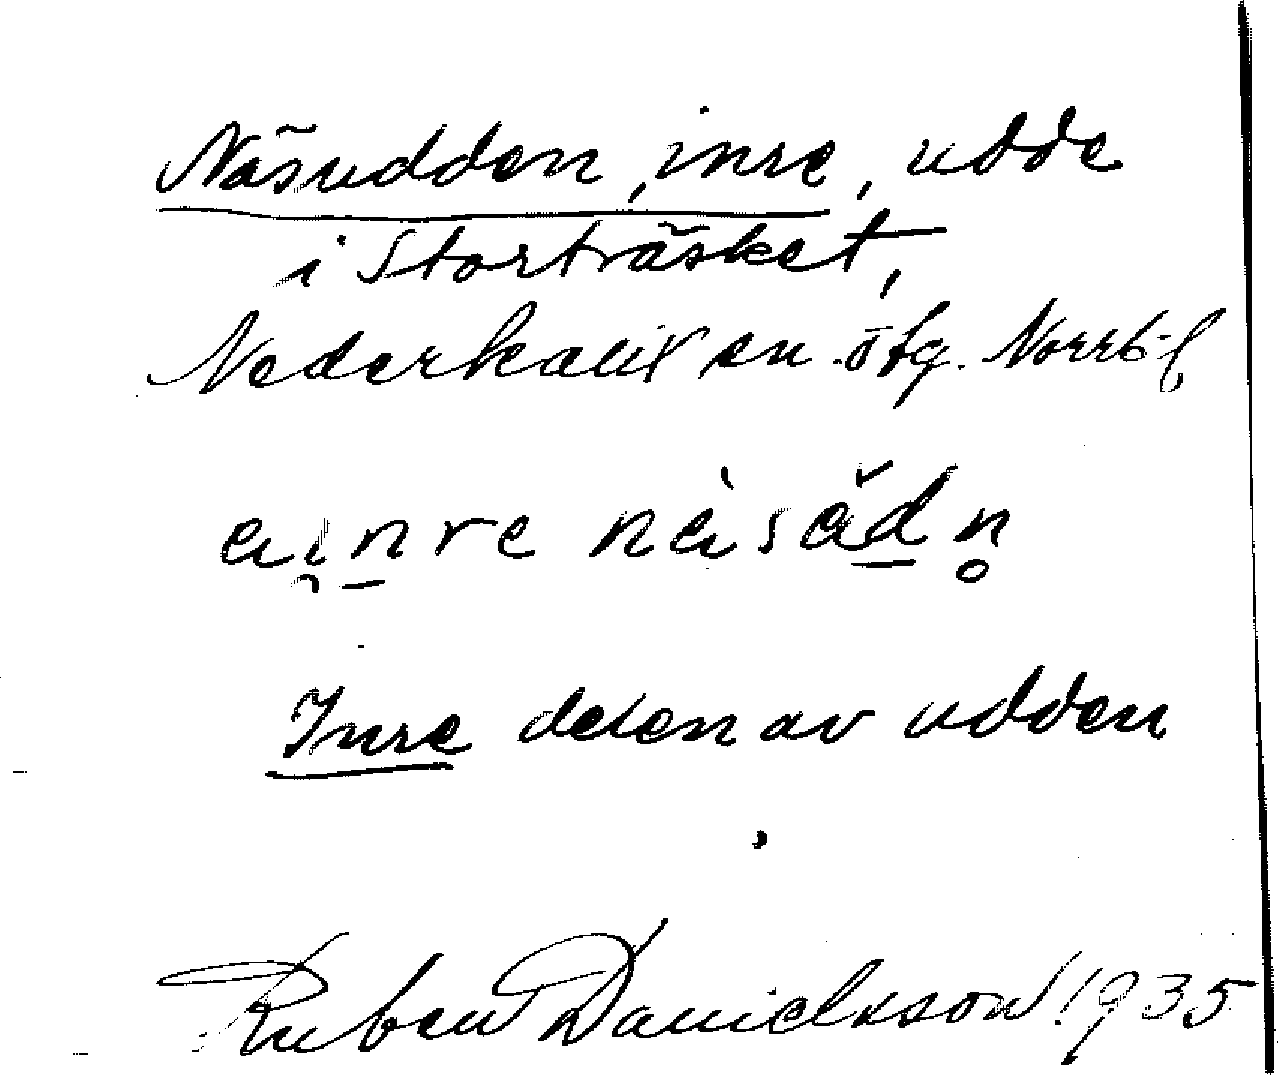 Näsudden, inre, udde
i Storträsket,
Nederkalix sn. ötg. Norrb. l
Inre delen av udden
Ruben Danielsson 1935